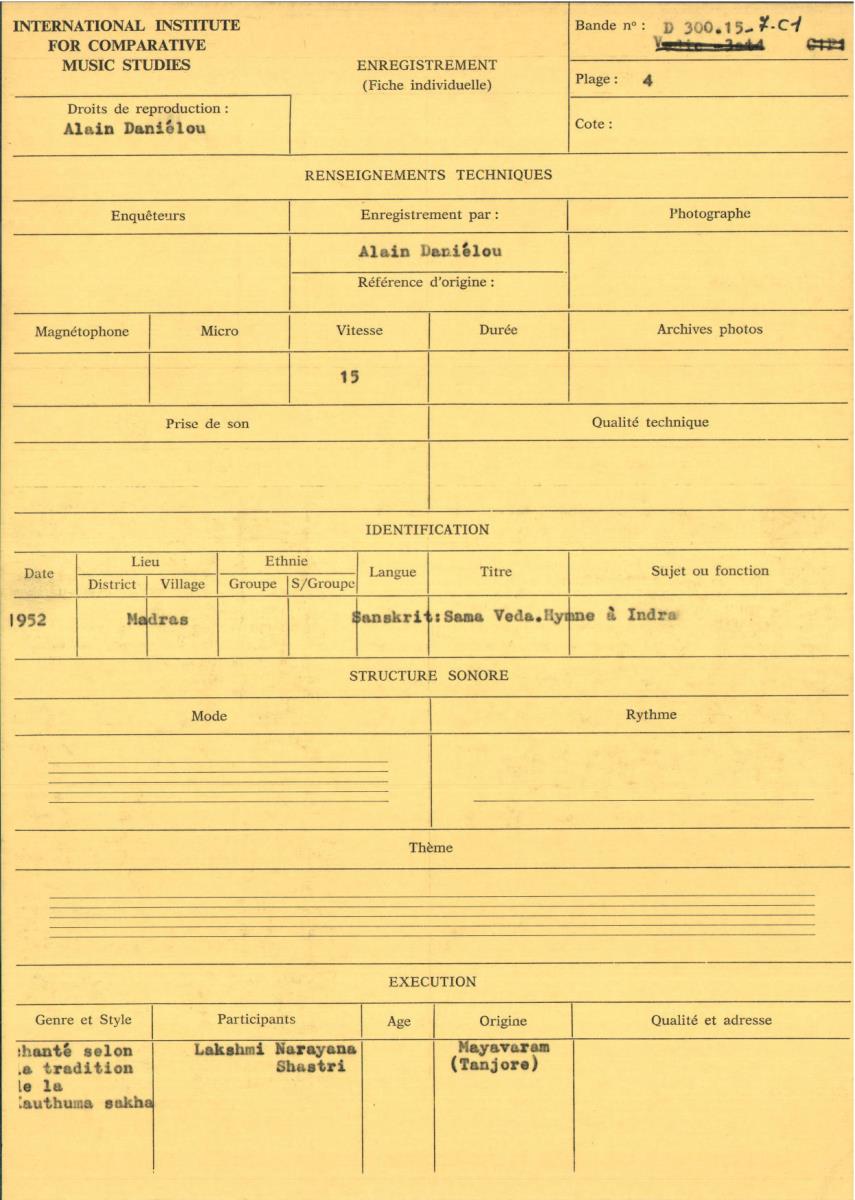 INTERNATIONAL INSTITUTE
FOR COMPARATIVE
MUSIC STUDIES
Droits de reproduction :
Alain Daniélou
ENREGISTREMENT
(Fiche individuelle)
Bande nº : D 300.15-7-C1
Plage : 4
Cote :
RENSEIGNEMENTS TECHNIQUES
Enquêteurs
Enregistrement par :
Photographe
Alain Daniélou
Référence d'origine :
Magnétophone
Micro
Vitesse
Durée
Archives photos
15
Prise de son
Qualité technique
IDENTIFICATION
Date
Lieu
District
Village
Ethnie
Groupe
S/Groupe
Langue
Titre
Sujet ou fonction
1952 Madras Sanskrit:Sama Veda.Hymne à Indra
STRUCTURE SONORE
Mode
Rythme
Thème
EXECUTION
Genre et Style
Participants
Age
Origine
Qualité et adresse
hanté selon
a tradition
e la
authuma sakha
Lakshmi Narayana
Shastri
Mayavaram
(Tanjore)